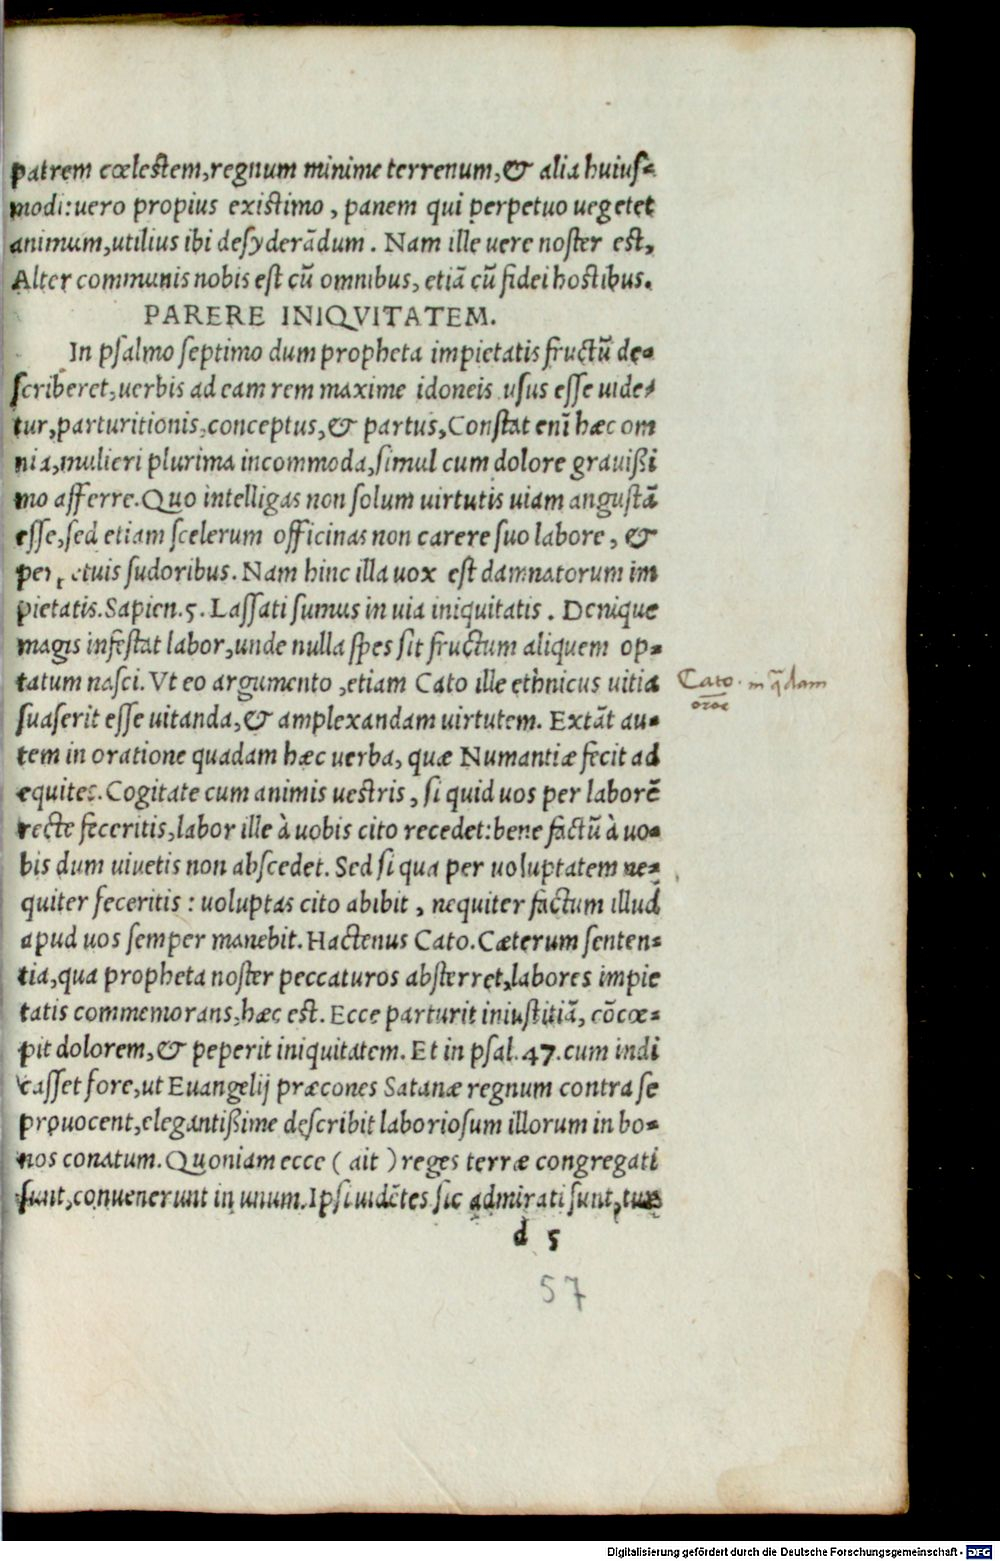 patrem cœlestem, regnum minime terrenum, & alia huius-
modi: uero propius existimo, panem qui perpetuo uegetet
animum, utilius ibi desyderādum. Nam ille uere noster est,
Alter communis nobis est cū omnibus, etiā cū fidei hostibus.
PARERE INIQVITATEM.
In psalmo septimo dum propheta impietatis fructū de-
scriberet, uerbis ad eam rem maxime idoneis usus esse uide-
tur, parturitionis, conceptus, & partus, Constat enī hæc om
nia, mulieri plurima incommoda, simul cum dolore grauißi
mo afferre. Quo intelligas non solum uirtutis uiam angustā
esse, sed etiam scelerum officinas non carere suo labore, &
perpetuis sudoribus. Nam hinc illa uox est damnatorum im
pietatis. Sapien. 5. Lassati sumus in uia iniquitatis. Denique
magis infestat labor, unde nulla spes sit fructum aliquem op-
tatum nasci. Vt eo argumento, etiam Cato ille ethnicus uitia
Cato. in q̄dam
oro͞e
suaserit esse uitanda, & amplexandam uirtutem. Extāt au-
tem in oratione quadam hæc uerba, quæ Numantiæ fecit ad
equites. Cogitate cum animis uestris, si quid uos per laborē
recte feceritis, labor ille à uobis cito recedet: bene factū à uo-
bis dum uiuetis non abscedet. Sed si qua per uoluptatem ne-
quiter feceritis: uoluptas cito abibit, nequiter factum illud
apud uos semper manebit. Hactenus Cato. Cæterum senten-
tia, qua propheta noster peccaturos absterret, labores impie
tatis commemorans, hæc est. Ecce parturit iniustitiā, cōcœ-
pit dolorem, & peperit iniquitatem. Et in psal. 47. cum indi
casset fore, ut Euangelij præcones Satanæ regnum contra se
prouocent, elegantißime describit laboriosum illorum in bo-
nos conatum. Quoniam ecce (ait) reges terræ congregati
sunt, conuenerunt in unum. Ipsi uidētes sic admirati sunt, tur
d 5
57
Digitalisierung gefördert durch die Deutsche Forschungsgemeinschaft - DFG